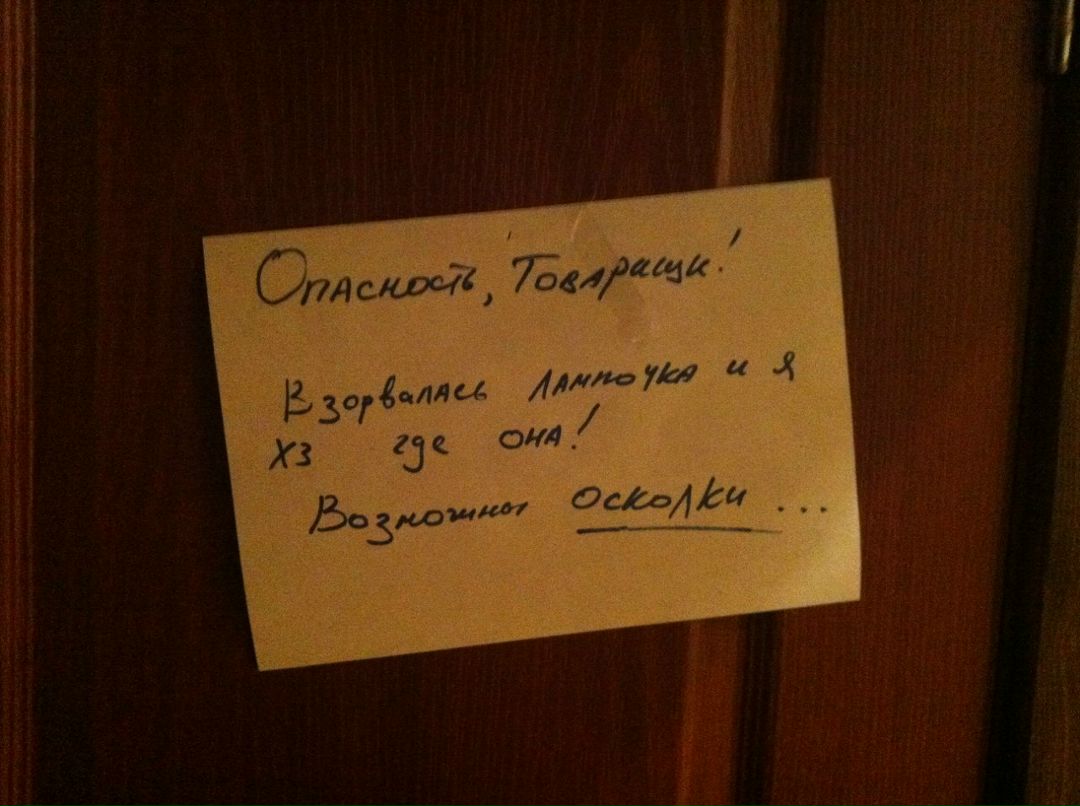 Опасность, Товарищи!
Взорвалась лампочка и я
хз где она!
Возможны осколки ...